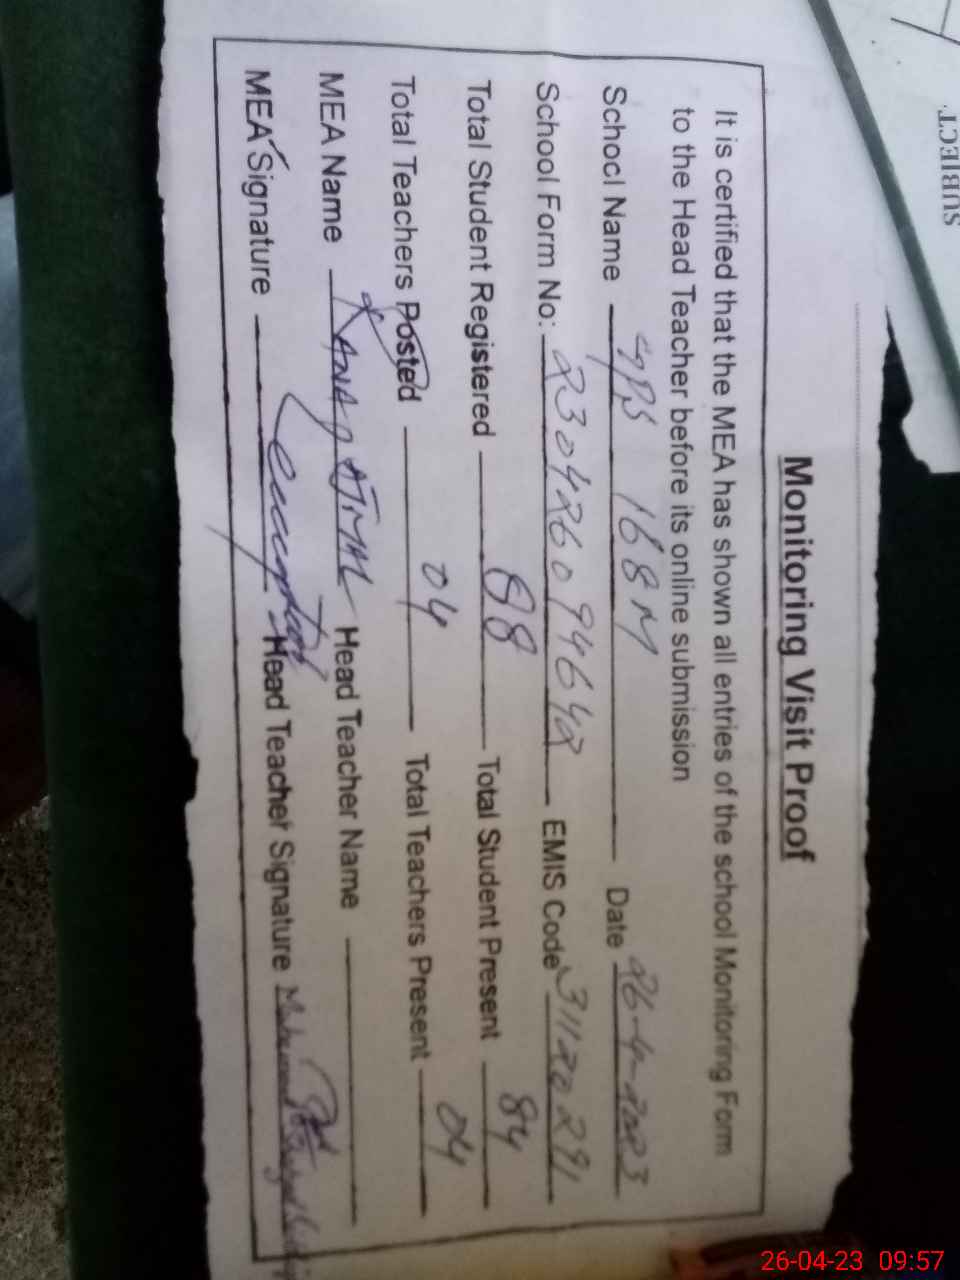 Monitoring Visit Proof
It is certified that the MEA has shown all entries of the school Monitoring Form
to the Head Teacher before its online submission
School Name GPS 168 M Date 26-4-2023
School Form No: 230426094642 EMIS Code 31120291
Total Student Registered 88 Total Student Present 84
Total Teachers Posted 04 Total Teachers Present 04
MEA Name Head Teacher Name
MEA Signature Head Teacher Signature
SUBJECT
26-04-23 09:57